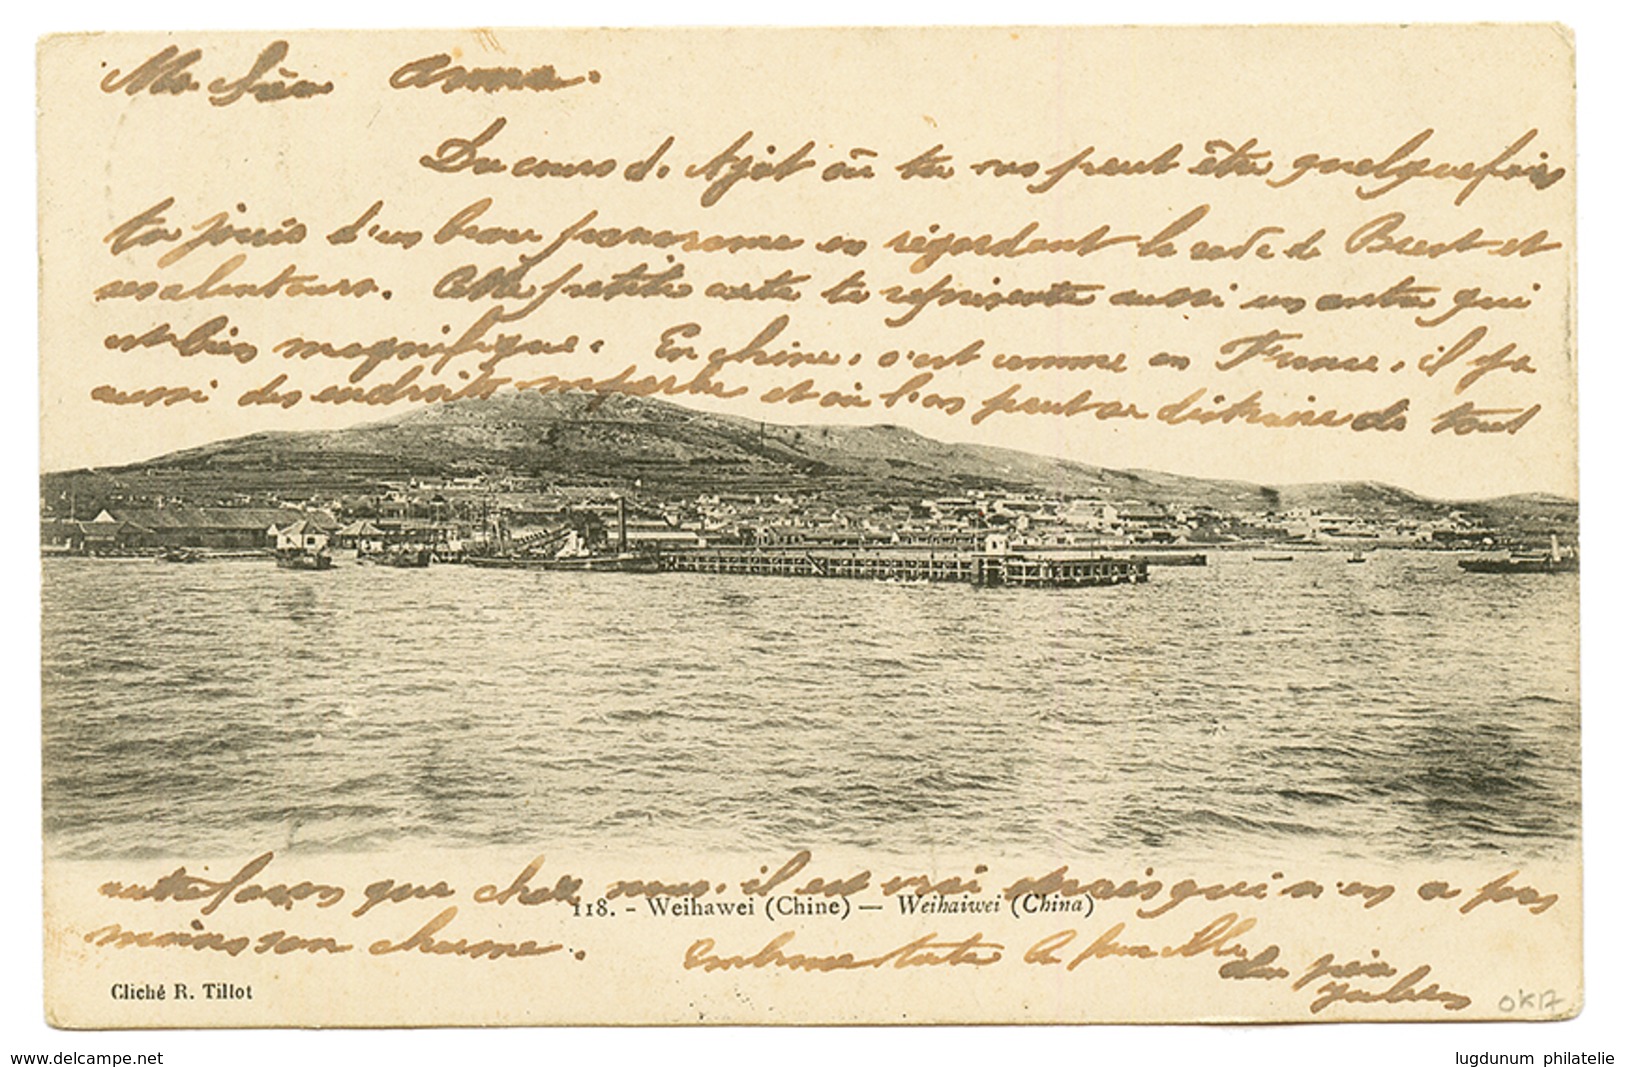 Ma chère Anna.
Du cours d. Ajot où tu vas peut être quelquefois
tu jouis d'un beau panorama en régardant la rade de Brest et
ses alentours. Cette petite carte te représente aussi un autre qui
est bien magnifique. En Chine, c'est comme en France, il y a
aussi des endroits superbe et où l'on peut se distraire de tout
autre façon que chez nous, il est vrai mais qui n'en a pas
118. - Weihawei (Chine) — Weihaiwei (China)
moins son charme. Embrasse toute la famille
Ton
Julien
Cliché R. Tillot
OK17
www.delcampe.net
lugdunum philatelie